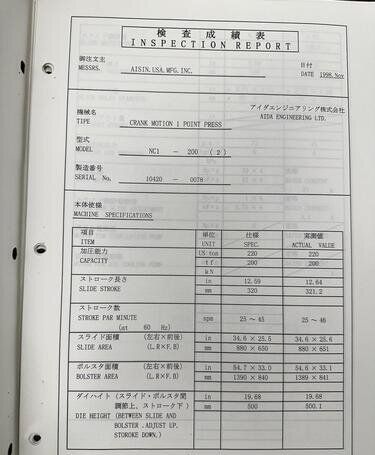 検査成績表
INSPECTION REPORT
御注文主
MESSRS. AISIN.USA.MFG.INC.
日付
DATE 1998.Nov
機械名
TYPE CRANK MOTION 1 POINT PRESS
アイダエンジニアリング株式会社
AIDA ENGINEERING LTD.
型式
MODEL NC1 - 200 (2)
製造番号
SERIAL No. 10420 - 0078
本体仕様
MACHINE SPECIFICATIONS
項目 単位 仕様 実測値
ITEM UNIT SPEC. ACTUAL VALUE
加圧能力 US ton 220 220
CAPACITY tf 200 200
kN
ストローク長さ in 12.59 12.64
SLIDE STROKE mm 320 321.2
ストローク数
STROKE PAR MINUTE spm 25 ~ 45 25 ~ 46
(at 60 Hz)
スライド面積 (左右×前後) in 34.6 × 25.5 34.6 × 25.6
SLIDE AREA (L.R×F.B) mm 880 × 650 880 × 651
ボルスタ面積 (左右×前後) in 54.7 × 33.0 54.6 × 33.1
BOLSTER AREA (L.R×F.B) mm 1390 × 840 1389 × 841
ダイハイト (スライド・ボルスタ間 in 19.68 19.68
調節上、ストローク下) mm 500 500.1
DIE HEIGHT (BETWEEN SLIDE AND
BOLSTER .ADJUST UP.
STOROKE DOWN.)